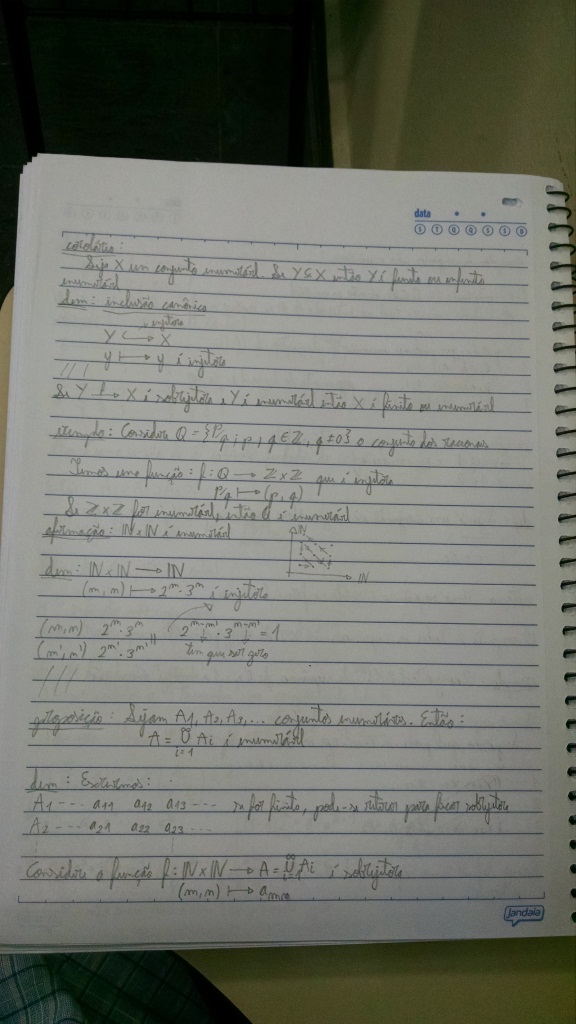 data
S T Q Q S S D
corolário:
Seja X um conjunto enumerável. Se Y ⊆ X então Y é finito ou infinito
enumerável
dem: inclusão canônica
injetora
Y ↪ X
y ⟼ y é injetora
///
Se Y —f→ X é sobrejetora e Y é enumerável então X é finito ou enumerável
exemplo: Considere Q = {p/q ; p, q ∈ Z, q ≠ 0} o conjunto dos racionais
Temos uma função: f: Q → Z×Z que é injetora
p/q ⟼ (p, q)
Se Z×Z for enumerável, então Q é enumerável
afirmação: IN×IN é enumerável
IN
IN
dem: IN×IN → IN
(m, n) ⟼ 2^m · 3^n é injetora
(m, n) 2^m · 3^n
(m', n') 2^m' · 3^n' || 2^m-m' · 3^n-n' = 1
tem que ser zero
///
proposição: Sejam A1, A2, A3, ... conjuntos enumeráveis. Então:
A = ∞∪i=1 Ai é enumerável
dem: Escrevemos:
A1 --- a11 a12 a13 --- se for finito, pode-se repetir para ficar sobrejetora
A2 --- a21 a22 a23 ---
Considere a função f: IN×IN → A = ∞∪i=1 Ai é sobrejetora
(m, n) ⟼ amn
Jandaia